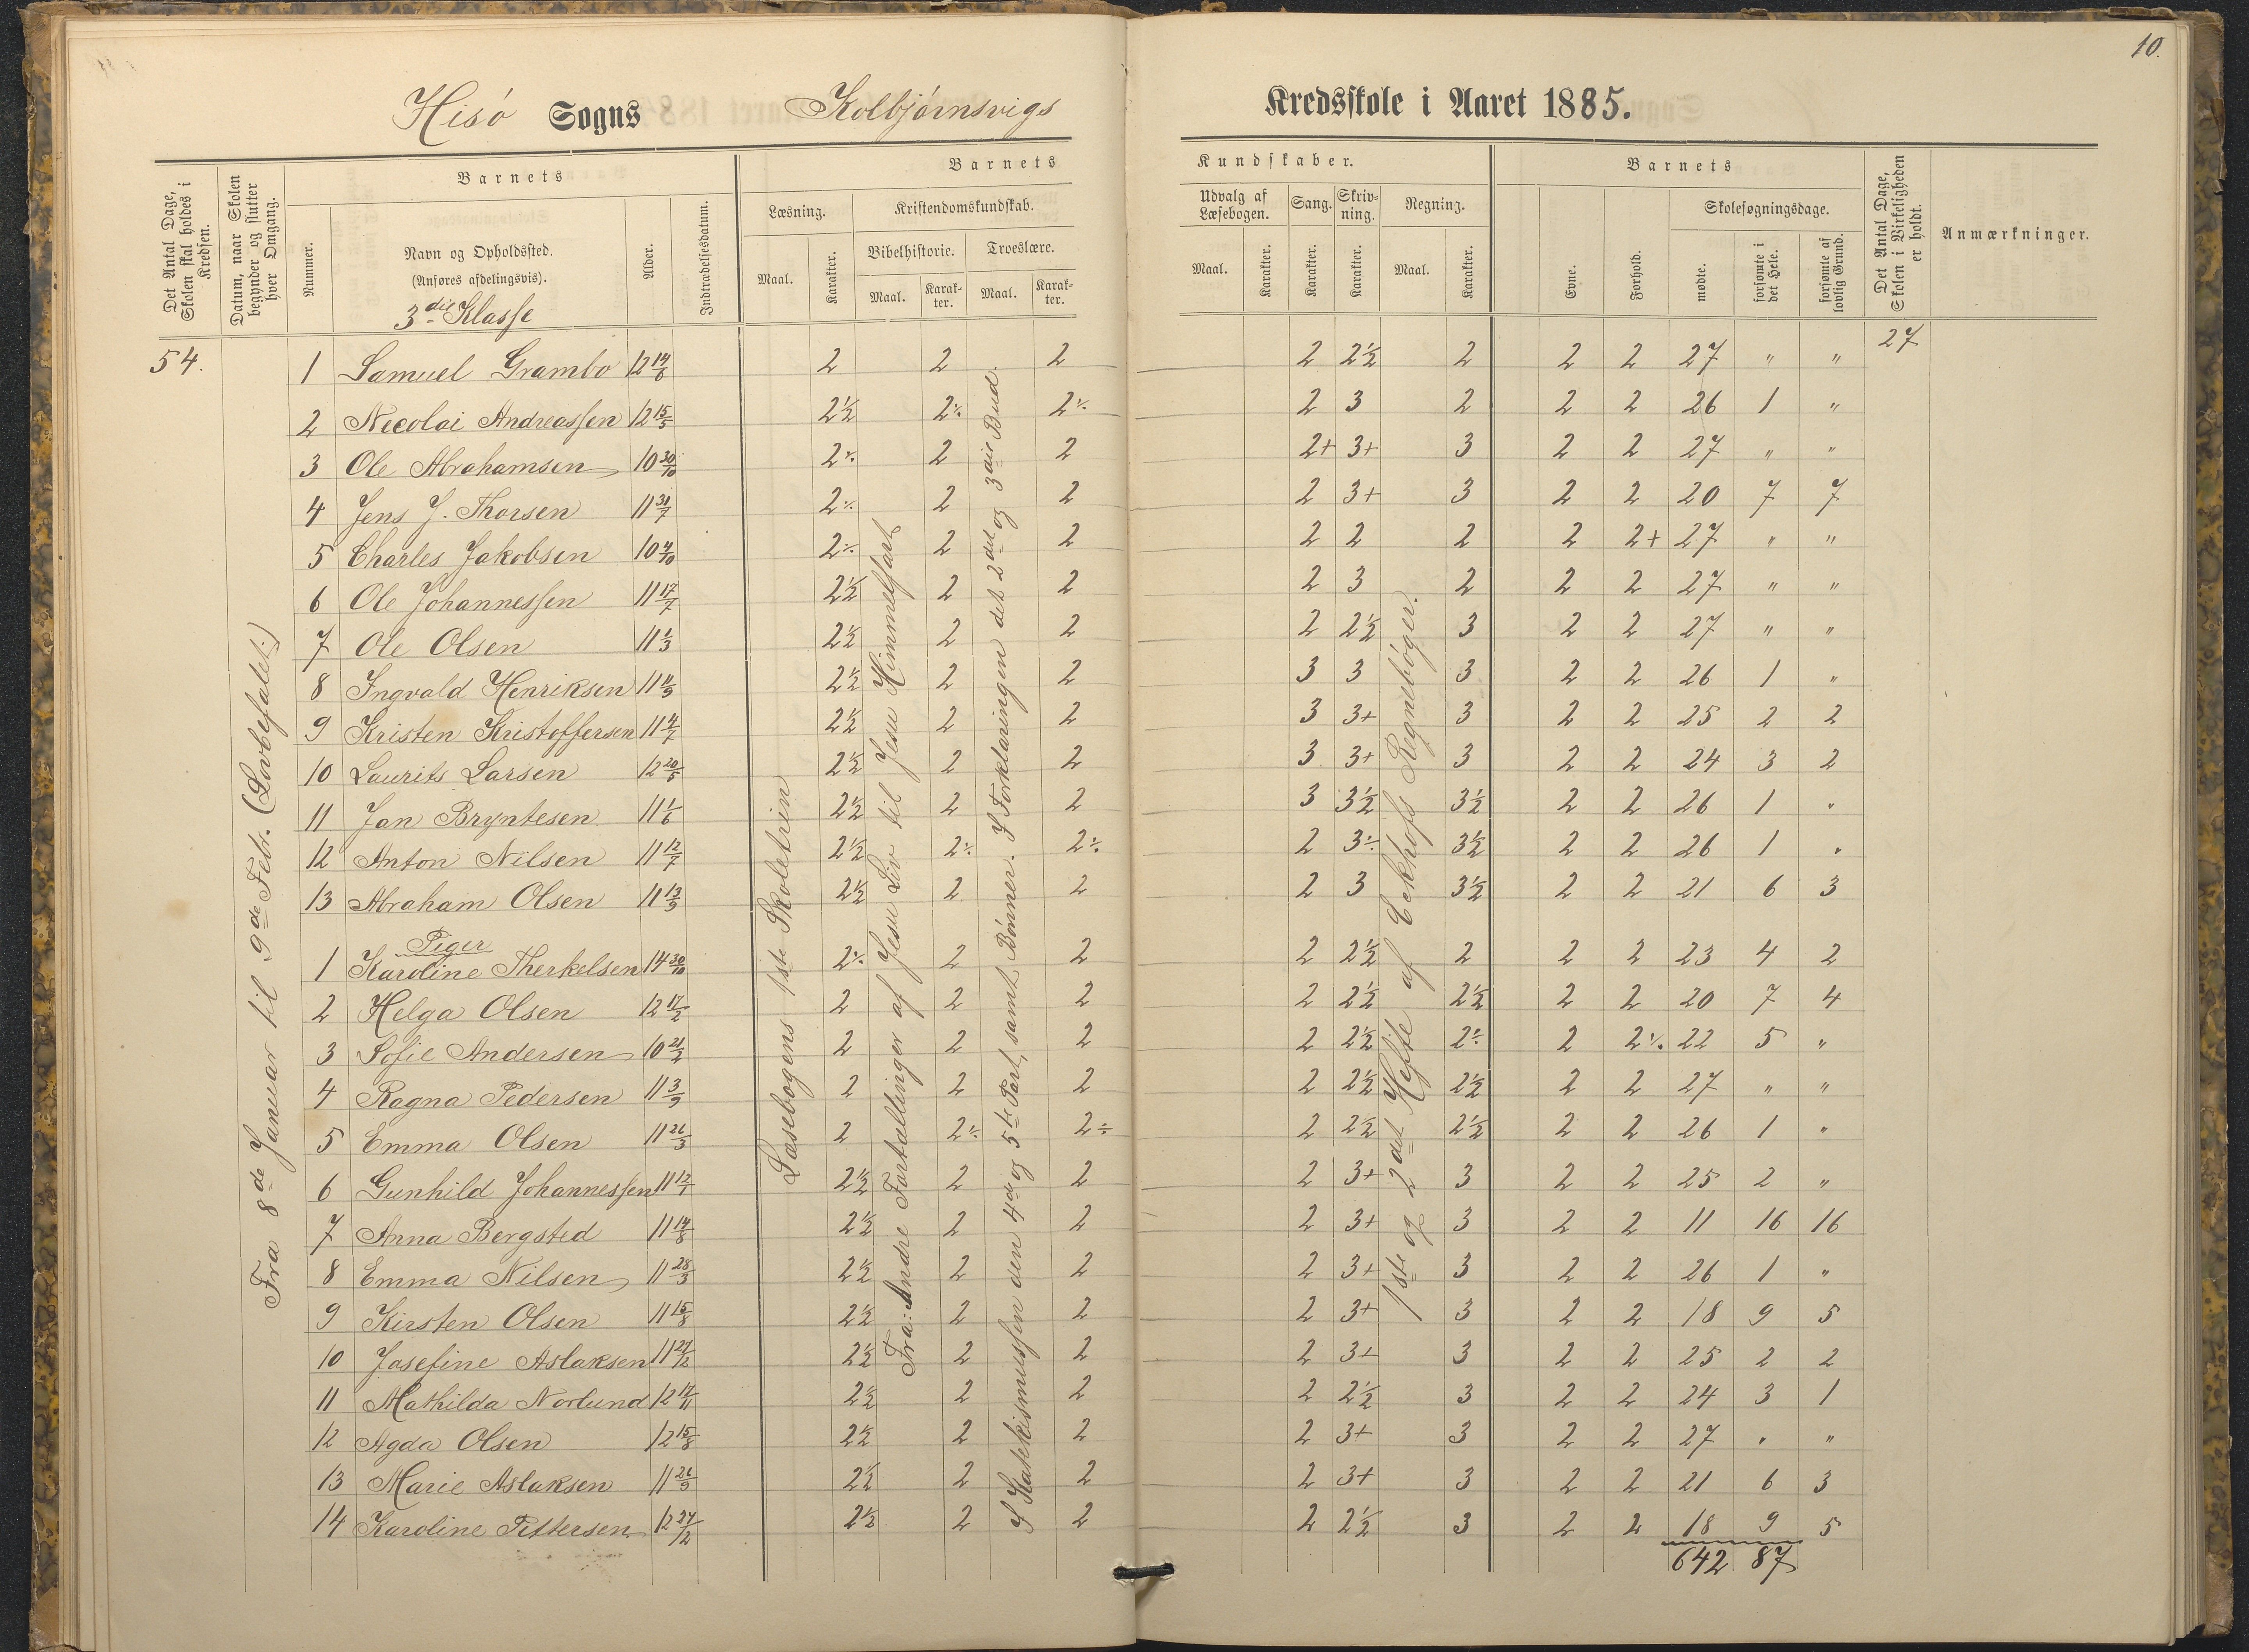 10.
Hisö Sogns Kolbjörnsvigs Kredsskole i Aaret 1885.
Det Antal Dage, Skolen skal holdes i Kredsen.
Datum, naar Skolen begynder og slutter hver Omgang.
Barnets
Nummer.
Navn og Opholdssted.
(Anføres afdelingsvis).
3die Klasse
Alder.
Indtrædelsesdatum.
Barnets Kundskaber.
Læsning.
Maal. Karakter.
Kristendomskundskab.
Bibelhistorie. Troeslære.
Maal. Karakter. Maal. Karakter.
Udvalg af Læsebogen.
Maal. Karakter.
Sang.
Karakter.
Skrivning.
Karakter.
Regning.
Maal. Karakter.
Barnets
Evne. Forhold.
Skolesøgningsdage.
mødte. forsømte i det Hele. forsømte af lovlig Grund.
Det Antal Dage, Skolen i Virkeligheden er holdt.
Anmærkninger.
54.
27
Fra 8de Januar til 9de Febr. (Lovbefalet:)
Læsebogens 1ste Skoletrin
Fra: Andre Fortællinger af Jesu Liv til Jesu Himmelfart
I Katekismussen den 4de og 5te Part, samt Bönner. I Forklaringen det 2det og 3die Bud.
1ste og 2det Hefte af Eckhofs Regneböger.
1 Samuel Grambo 12 14/6 2 2 2 2 2½ 2 2 2 27 " "
2 Nicolai Andreassen 12 15/5 2½ 2÷ 2÷ 2 3 2 2 2 26 1 "
3 Ole Abrahamsen 10 30/10 2÷ 2 2 2+ 3+ 3 2 2 27 " "
4 Jens J. Thorsen 11 31/7 2÷ 2 2 2 3+ 3 2 2 20 7 7
5 Charles Jakobsen 10 4/10 2÷ 2 2 2 2 2 2 2+ 27 " "
6 Ole Johannessen 11 17/7 2½ 2 2 2 3 2 2 2 27 " "
7 Ole Olsen 11 1/3 2½ 2 2 2 2½ 3 2 2 27 " "
8 Ingvald Henriksen 11 11/9 2½ 2 2 3 3 3 2 2 26 1 "
9 Kristen Kristoffersen 11 4/7 2½ 2 2 3 3+ 3 2 2 25 2 2
10 Laurits Larsen 12 20/5 2½ 2 2 3 3+ 3 2 2 24 3 2
11 Jan Bryntesen 11 1/6 2½ 2 2 3 3½ 3½ 2 2 26 1 "
12 Anton Nilsen 11 12/7 2½ 2÷ 2÷ 2 3÷ 3½ 2 2 26 1 "
13 Abraham Olsen 11 13/9 2½ 2 2 2 3 3½ 2 2 21 6 3
Piger
1 Karoline Therkelsen 14 30/10 2÷ 2 2 2 2½ 2 2 2 23 4 2
2 Helga Olsen 12 17/2 2 2 2 2 2½ 2½ 2 2 20 7 4
3 Sofie Andersen 10 21/2 2 2 2 2 2½ 2÷ 2 2÷ 22 5 "
4 Ragna Pedersen 11 3/9 2 2 2 2 2½ 2½ 2 2 27 " "
5 Emma Olsen 11 26/3 2 2÷ 2÷ 2 2½ 2½ 2 2 26 1 "
6 Gunhild Johannessen 11 12/1 2½ 2 2 2 3+ 3 2 2 25 2 "
7 Anna Bergsted 11 14/8 2½ 2 2 2 3+ 3 2 2 11 16 16
8 Emma Nilsen 11 28/3 2½ 2 2 2 3+ 3 2 2 26 1 "
9 Kirsten Olsen 11 15/8 2½ 2 2 2 3+ 3 2 2 18 9 5
10 Josefine Aslaksen 11 27/12 2½ 2 2 2 3+ 3 2 2 25 2 2
11 Mathilda Norlund 12 14/11 2½ 2 2 2 2½ 3 2 2 24 3 1
12 Agda Olsen 12 15/8 2½ 2 2 2 3+ 3 2 2 27 " "
13 Marie Aslaksen 11 26/9 2½ 2 2 2 3+ 3 2 2 21 6 3
14 Karoline Pettersen 12 27/12 2½ 2 2 2 2½ 3 2 2 18 9 5
642 87